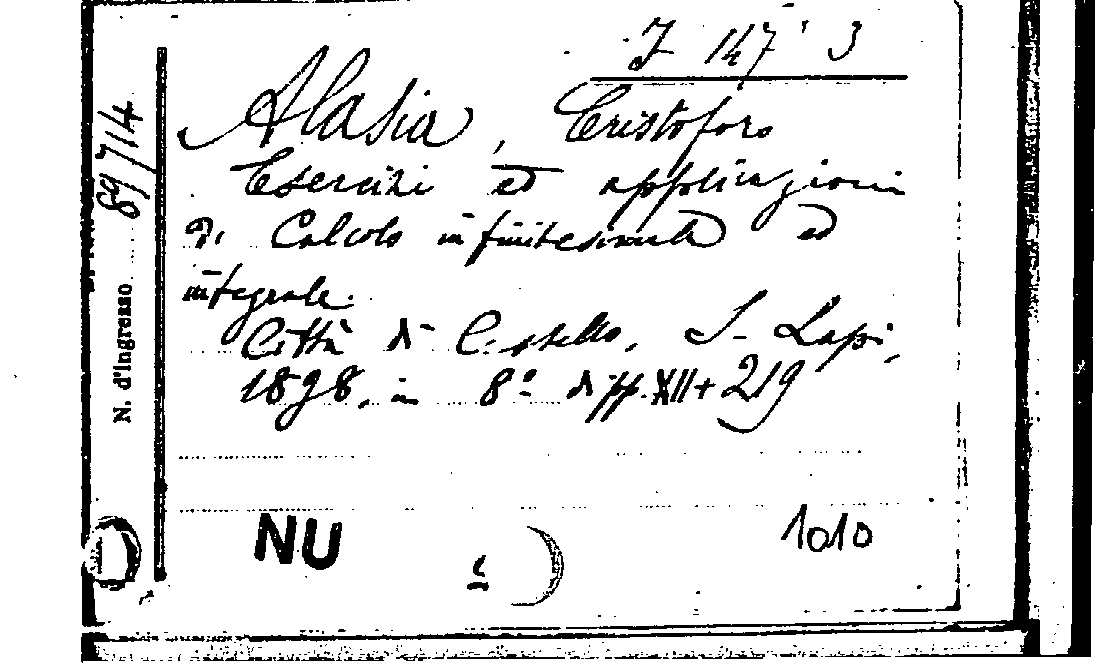 I 147 3
Alasia, Cristoforo
Esercizi ed applicazioni
di Calcolo infinitesimale ed
integrale.
Città di Castello, S. Lapi,
1898, in 8º di pp. XII + 219
N. d'ingresso 89714
NU
1010